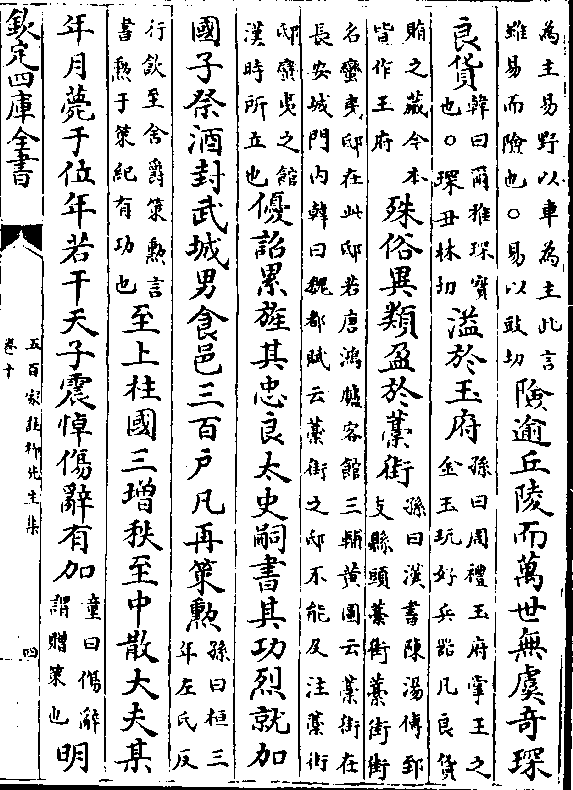 為主易野以車為主此言
雖易而險也○易以豉切
險逾丘陵而萬世無虞奇琛
良貨
韓曰爾雅琛寳
也○琛丑林切
溢於玉府
孫曰周禮玉府掌王之
金玉玩好兵器凡良貨
賄之藏今本
皆作王府
殊俗異類盈於藁街
孫曰漢書陳湯傳郅
支縣頭藁街藁街街
名蠻夷邸在此邸若唐鴻臚客館三輔黄圖云藁街在
長安城門内韓曰魏都賦云藁街之邸不能及注藁街
邸蠻夷之館
漢時所立也
優詔累旌其忠良太史嗣書其功烈就加
國子祭酒封武城男食邑三百户凡再策勲
孫曰桓三
年左氏反
行飲至舍爵策勲言
書勲于策紀有功也
至上柱國三增秩至中散大夫某
年月薨于位年若干天子震悼傷辭有加
童曰傷辭
謂贈策也
明
欽定四庫全書
五百家註柳先生集
卷十
四